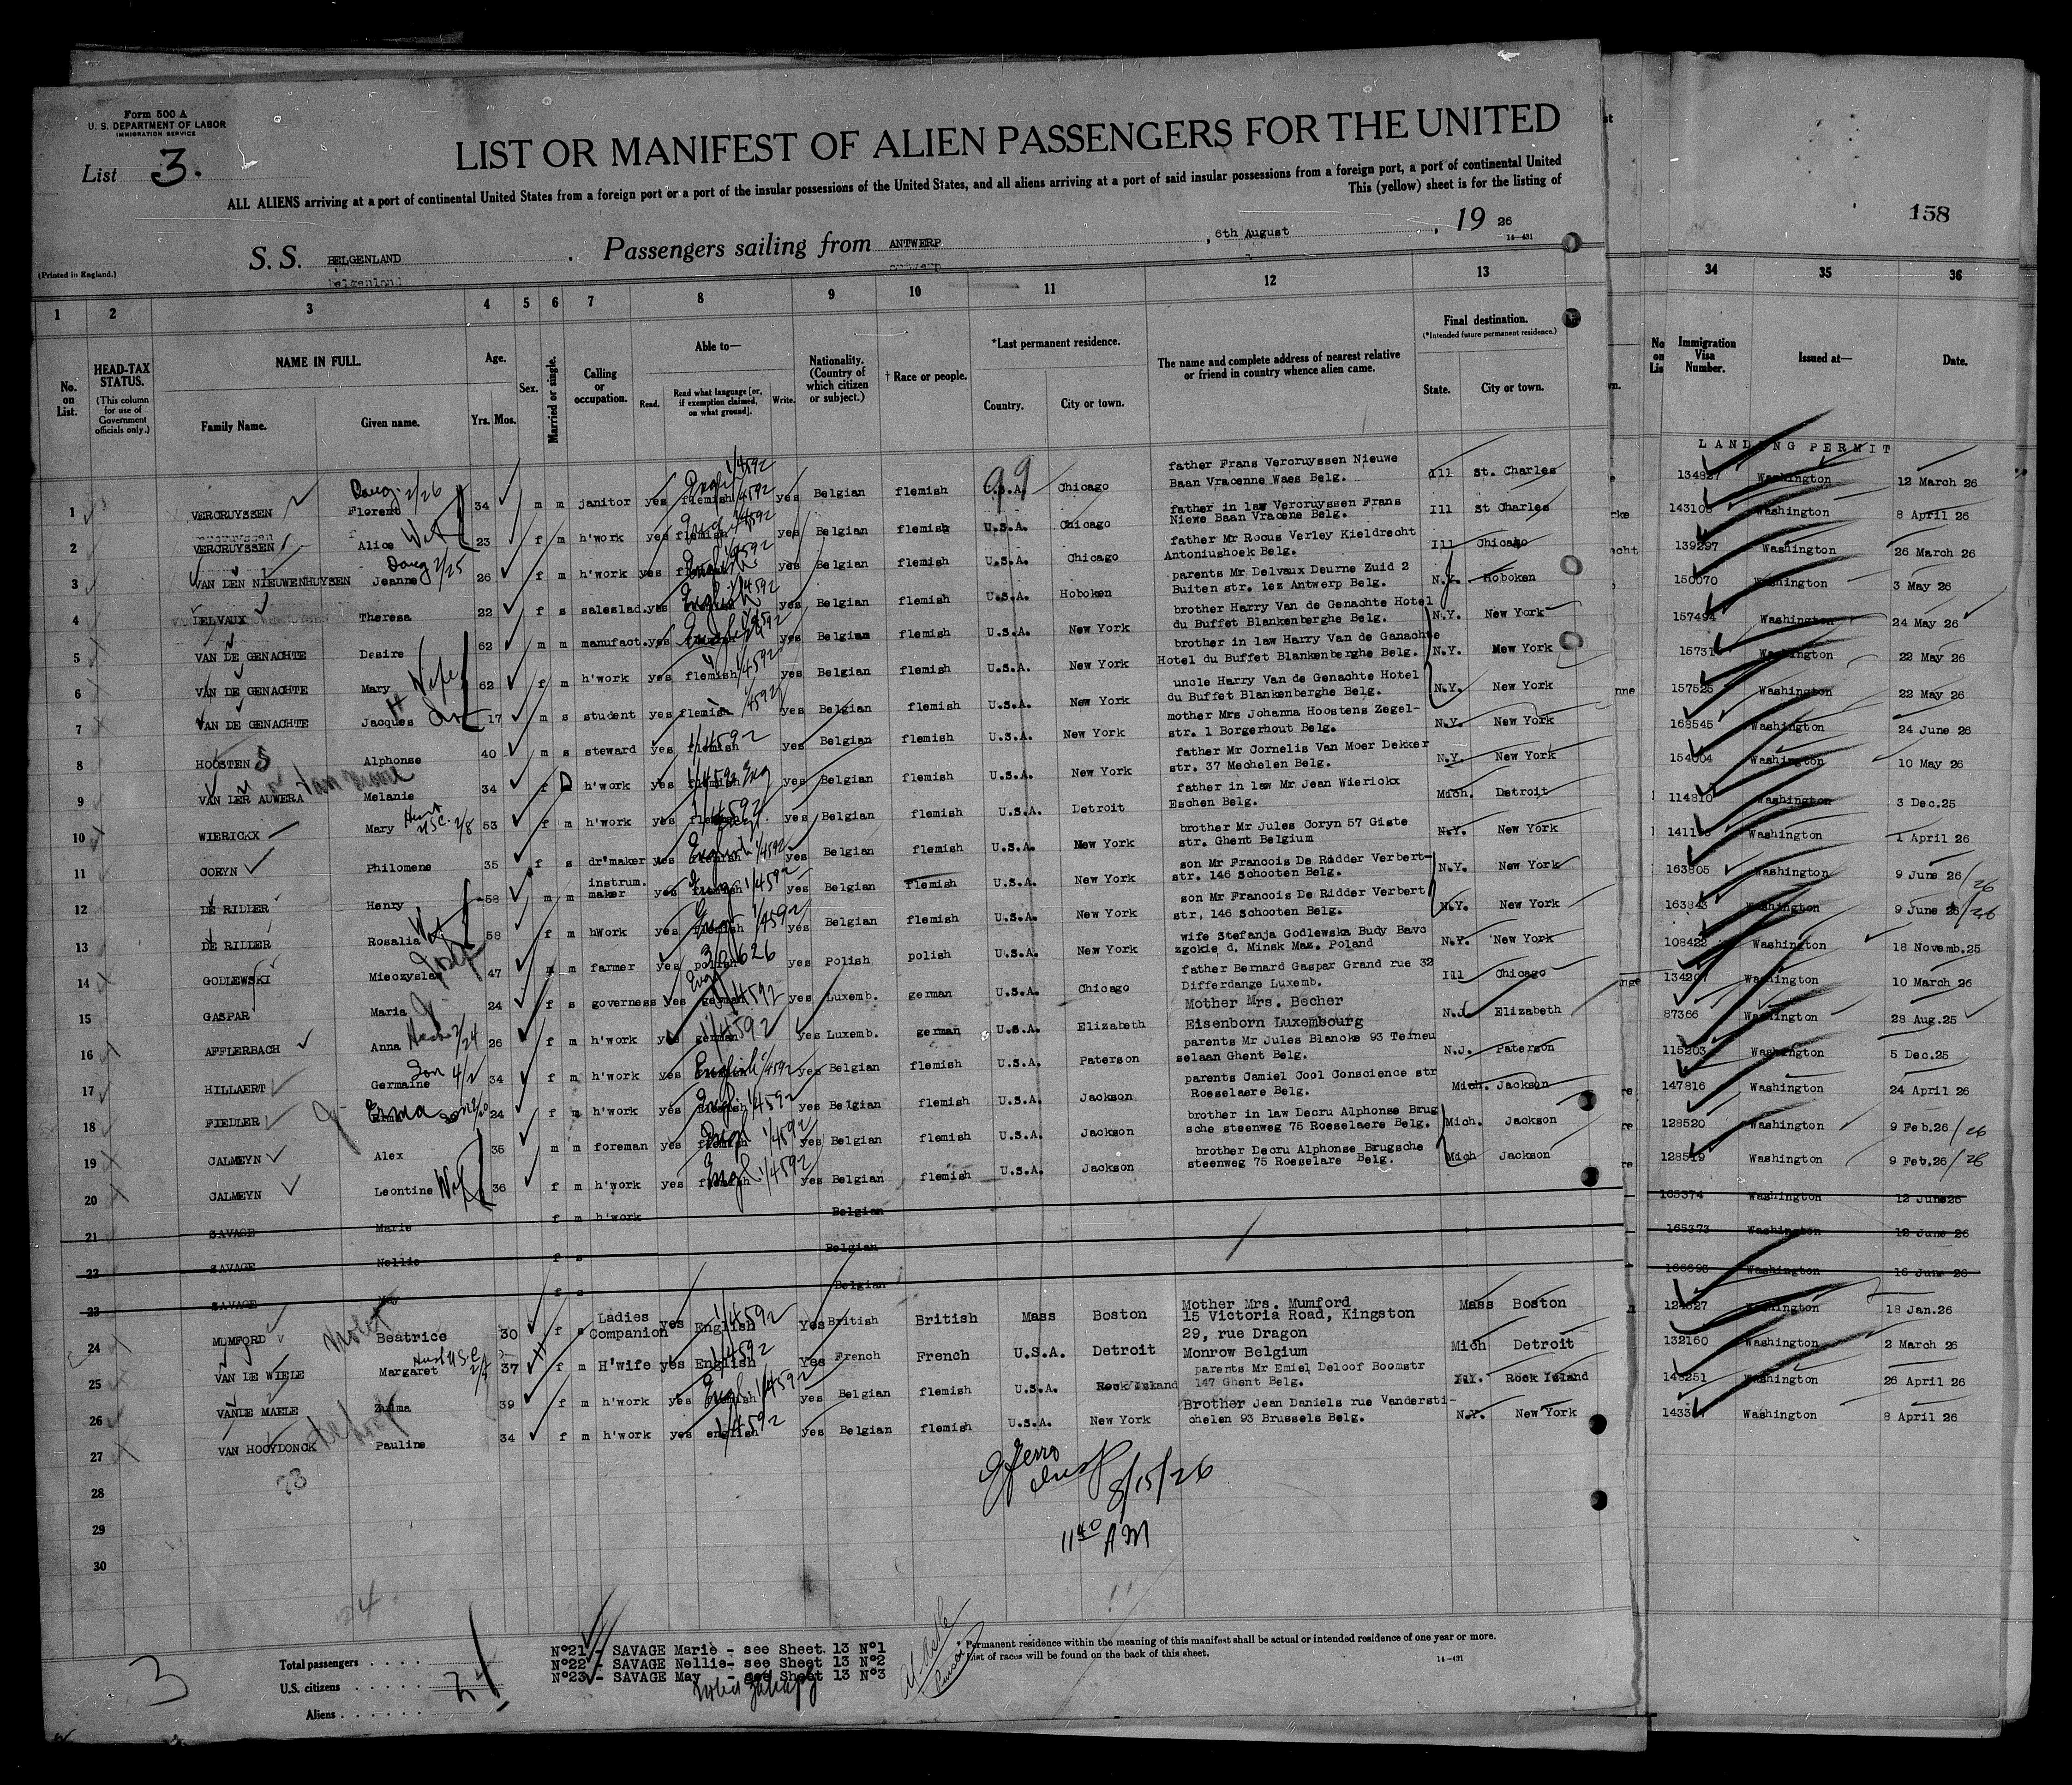 Form 500 A
U. S. DEPARTMENT OF LABOR
IMMIGRATION SERVICE
List 3.
LIST OR MANIFEST OF ALIEN PASSENGERS FOR THE UNITED
ALL ALIENS arriving at a port of continental United States from a foreign port or a port of the insular possessions of the United States, and all aliens arriving at a port of said insular possessions from a foreign port, a port of continental United
This (yellow) sheet is for the listing of
158
S. S. BELGENLAND Passengers sailing from ANTWERP, 6th August, 19 26
14-431
(Printed in England.)
1 2 3 4 5 6 7 8 9 10 11 12 13 34 35 36
No. on List.
HEAD-TAX STATUS.
(This column for use of Government officials only.)
NAME IN FULL.
Family Name. Given name.
Age.
Yrs. Mos.
Sex.
Married or single.
Calling or occupation.
Able to—
Read. Read what language [or, if exemption claimed, on what ground]. Write.
Nationality. (Country of which citizen or subject.)
† Race or people.
*Last permanent residence.
Country. City or town.
The name and complete address of nearest relative or friend in country whence alien came.
Final destination.
(*Intended future permanent residence.)
State. City or town.
Immigration Visa Number.
Issued at—
Date.
LANDING PERMIT
1 VERCRUYSSEN Florent 34 m m janitor yes flemish yes Belgian flemish U.S.A. Chicago father Frans Vercruyssen Nieuwe Baan Vracenne Waes Belg. Ill St. Charles Washington 12 March 26
2 VERCRUYSSEN Alice 23 f m h'work yes flemish yes Belgian flemish U.S.A. Chicago father in law Vercruyssen Frans Niewe Baan Vracene Belg. Ill St Charles Washington 8 April 26
3 VAN DEN NIEUWENHUYSEN Jeanne 26 f m h'work yes yes Belgian flemish U.S.A. Chicago father Mr Rocus Verley Kieldrecht Antoniushoek Belg. Ill Chicago 139297 Washington 26 March 26
4 DELVAUX Theresa 22 f s saleslad. yes English yes Belgian flemish U.S.A. Hoboken parents Mr Delvaux Deurne Zuid 2 Buiten str. 1ez Antwerp Belg. N.J. Hoboken 150070 Washington 3 May 26
5 VAN DE GENACHTE Desire 62 m m manufact. yes English yes Belgian flemish U.S.A. New York brother Harry Van de Genachte Hotel du Buffet Blankenberghe Belg. N.Y. New York 157494 Washington 24 May 26
6 VAN DE GENACHTE Mary Wife 62 f m h'work yes flemish yes Belgian flemish U.S.A. New York brother in law Harry Van de Ganachte Hotel du Buffet Blankenberghe Belg. N.Y. New York Washington 22 May 26
7 VAN DE GENACHTE Jacques 17 m s student yes flemish yes Belgian flemish U.S.A. New York uncle Harry Van de Genachte Hotel du Buffet Blankenberghe Belg. N.Y. New York 157525 Washington 22 May 26
8 HOOSTENS Alphonse 40 m s steward yes flemish yes Belgian flemish U.S.A. New York mother Mrs Johanna Hoostens Zegel- str. 1 Borgerhout Belg. N.Y. New York 168545 Washington 24 June 26
9 VAN DER AUWERA Melanie 34 f D h'work yes flemish yes Belgian flemish U.S.A. New York father Mr Cornelis Van Moer Dekker str. 37 Mechelen Belg. N.Y. New York 154004 Washington 10 May 26
10 WIERICKX Mary 53 f m h'work yes flemish yes Belgian flemish U.S.A. Detroit father in law Mr Jean Wierickx Esschen Belg. Mich. Detroit 114810 Washington 3 Dec.25
11 CORYN Philomene 35 f s dr'maker yes English yes Belgian flemish U.S.A. New York brother Mr Jules Coryn 57 Giste str. Ghent Belgium N.Y. New York Washington 1 April 26
12 DE RIDDER Henry 58 m m instrum. maker yes flemish yes Belgian flemish U.S.A. New York son Mr Francois De Ridder Verbert- str. 146 Schooten Belg. N.Y. New York 163805 Washington 9 June 26
13 DE RIDDER Rosalia 58 f m hWork yes flemish yes Belgian flemish U.S.A. New York son Mr Francois De Ridder Verbert str, 146 Schooten Belg. N.Y. New York 163843 Washington 9 June 26
14 GODLEWSKI Mieczyslaw 47 m m farmer yes polish yes Polish polish U.S.A. New York wife Stefanja Godlewska Budy Bavc zgckie d. Minsk Maz. Poland N.Y. New York 108422 Washington 18 Novemb.25
15 GASPAR Maria 24 f s governess yes german yes Luxemb. german U.S.A. Chicago father Bernard Gaspar Grand rue 32 Differdange Luxemb. Ill Chicago 134207 Washington 10 March 26
16 AFFLERBACH Anna 26 f m h'work yes german yes Luxemb. german U.S.A. Elizabeth Mother Mrs. Becher Eisenborn Luxembourg N.J. Elizabeth 87366 Washington 28 Aug.25
17 HILLAERT Germaine 34 f m h'work yes English yes Belgian flemish U.S.A. Paterson parents Mr Jules Blancke 93 Terneu selaan Ghent Belg. N.J. Paterson 115203 Washington 5 Dec.25
18 FIEDLER Erma 24 f m h'work yes yes Belgian flemish U.S.A. Jackson parents Camiel Cool Conscience str Roeselaere Belg. Mich. Jackson 147816 Washington 24 April 26
19 CALMEYN Alex 35 m m foreman yes flemish yes Belgian flemish U.S.A. Jackson brother in law Decru Alphonse Brug sche steenweg 75 Roeselaere Belg. Mich. Jackson 128520 Washington 9 Feb.26
20 CALMEYN Leontine 36 f m h'work yes flemish yes Belgian flemish U.S.A. Jackson brother Decru Alphonse Brugsche steenweg 75 Roeselare Belg. Mich Jackson 128519 Washington 9 Feb.26
21 SAVAGE Marie f m h'work Belgian 165374 Washington 12 June26
22 SAVAGE Nellie f s Belgian 165373 Washington 12 June 26
23 SAVAGE May f s Belgian Washington 16 June 26
24 MUMFORD Violet Beatrice 30 f s Ladies Companion yes English Yes British British Mass Boston Mother Mrs. Mumford 15 Victoria Road, Kingston Mass Boston Washington 18 Jan.26
25 VAN DE WIELE Margaret 37 f m H'wife yes English Yes French French U.S.A. Detroit 29, rue Dragon Monrow Belgium Mich Detroit 132160 Washington 2 March 26
26 VANDE MAELE Zulma 39 f m h'work yes flemish yes Belgian flemish U.S.A. Rock Island parents Mr Emiel Deloof Boomstr 147 Ghent Belg. Ill. Rock Island Washington 26 April 26
27 VAN HOOYDONCK Pauline 34 f m h'work yes english yes Belgian flemish U.S.A. New York Brother Jean Daniels rue Vandersti- chelen 93 Brussels Belg. N.Y. New York Washington 8 April 26
28
29
30
8/15/26
11 40 AM
24
3
N°21 - SAVAGE Marie - see Sheet 13 N°1
N°22 - SAVAGE Nellie - see Sheet 13 N°2
N°23 - SAVAGE May - see Sheet 13 N°3
Total passengers
U.S. citizens
Aliens
* Permanent residence within the meaning of this manifest shall be actual or intended residence of one year or more.
† List of races will be found on the back of this sheet.
14-431